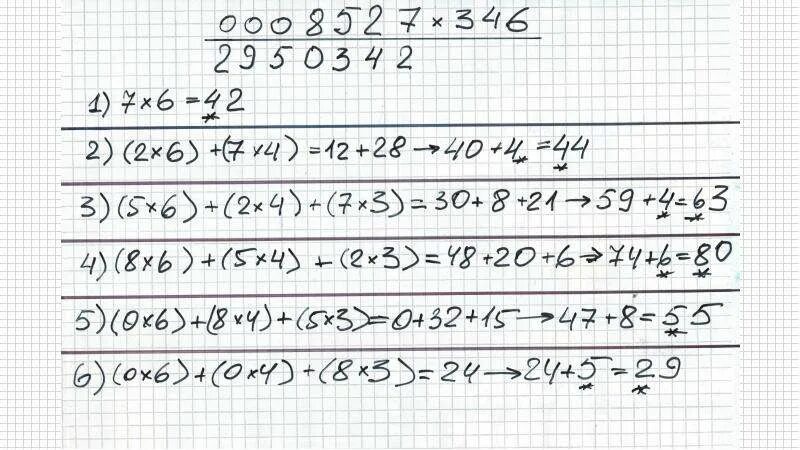 0008527 × 346
2950342
1) 7×6 = 42
2) (2×6) + (7×4) = 12+28 → 40+4 = 44
3) (5×6) + (2×4) + (7×3) = 30+8+21 → 59+4 = 63
4) (8×6) + (5×4) + (2×3) = 48+20+6 → 74+6 = 80
5) (0×6) + (8×4) + (5×3) = 0+32+15 → 47+8 = 55
6) (0×6) + (0×4) + (8×3) = 24 → 24+5 = 29